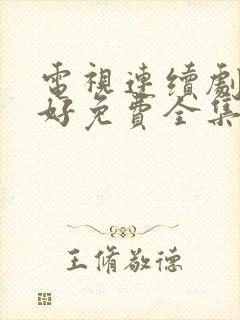 電視連續劇
好免費全集
王脩敬德